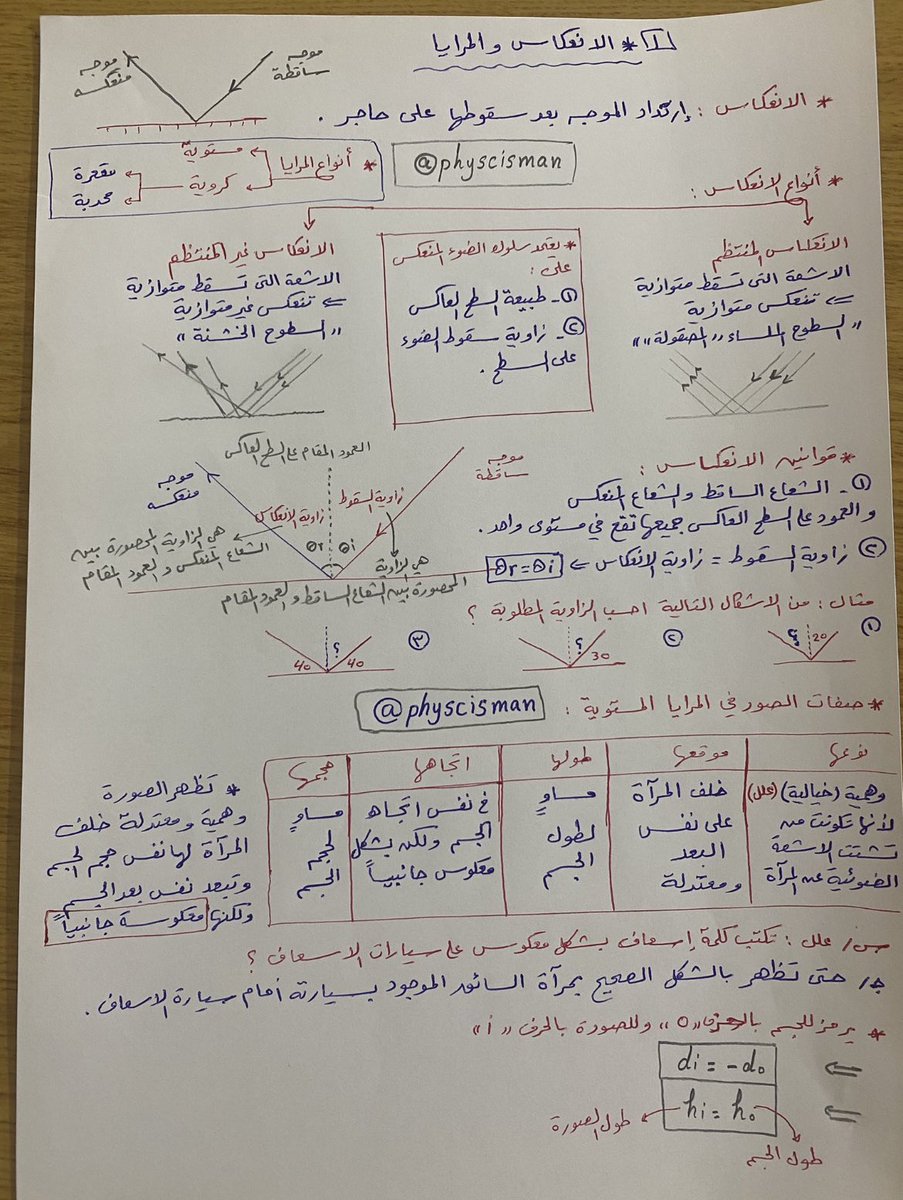 ١* الانعكاس والمرايا
موجه ساقطة
موجه منعكسه
* الانعكاس : إرتداد الموجه بعد سقوطها على حاجز .
@physcisman
* أنواع المرايا
مستوية
كروية
مقعرة
محدبة
* أنواع الانعكاس :
الانعكاس المنتظم
الاشعة التي تسقط متوازية
⇐ تنعكس متوازية
"السطوح الملساء "المصقولة""
* يعتمد سلوك الضوء المنعكس
على :
١- طبيعة السطح العاكس
٢- زاوية سقوط الضوء
على السطح .
الانعكاس غير المنتظم
الاشعة التي تسقط متوازية
⇐ تنعكس غير متوازية
"السطوح الخشنة"
* قوانين الانعكاس :
١- الشعاع الساقط والشعاع المنعكس
والعمود على السطح العاكس جميعها تقع في مستوى واحد .
٢ زاوية السقوط = زاوية الانعكاس ⇐ θr = θi
العمود المقام على السطح العاكس
موجه ساقطة
موجه منعكسه
زاوية السقوط
زاوية الانعكاس
θr θi
هي الزاوية المحصورة بين
الشعاع المنعكس والعمود المقام
هي الزاوية
المحصورة بين الشعاع الساقط والعمود المقام
مثال : من الاشكال التالية احسب الزاوية المطلوبة ؟
١ ؟ 20
٢ ؟ 30
٣ ؟ 40 40
* صفات الصور في المرايا المستوية :
@physcisman
نوعها موقعها طولها اتجاهها حجمها
وهمية (خيالية) (علل)
لأنها تكونت من
تشتت الاشعة
الضوئية عن المرآة
خلف المرآة
على نفس
البعد
ومعتدلة
مساوٍ
لطول
الجسم
في نفس اتجاه
الجسم ولكن بشكل
معكوس جانبياً
مساوٍ
لحجم
الجسم
* تظهر الصورة
وهمية ومعتدلة خلف
المرآة لها نفس حجم الجسم
وتبعد نفس بعد الجسم
ولكنها معكوسة جانبياً
س/ علل : تكتب كلمة إسعاف بشكل معكوس على سيارات الاسعاف ؟
ج/ حتى تظهر بالشكل الصحيح بمرآة السائق الموجود بسيارته أمام سيارة الاسعاف .
* يرمز للجسم بالحرف "o" وللصورة بالحرف "i"
⇐ di = -do
⇐ hi = ho
طول الصورة
طول الجسم